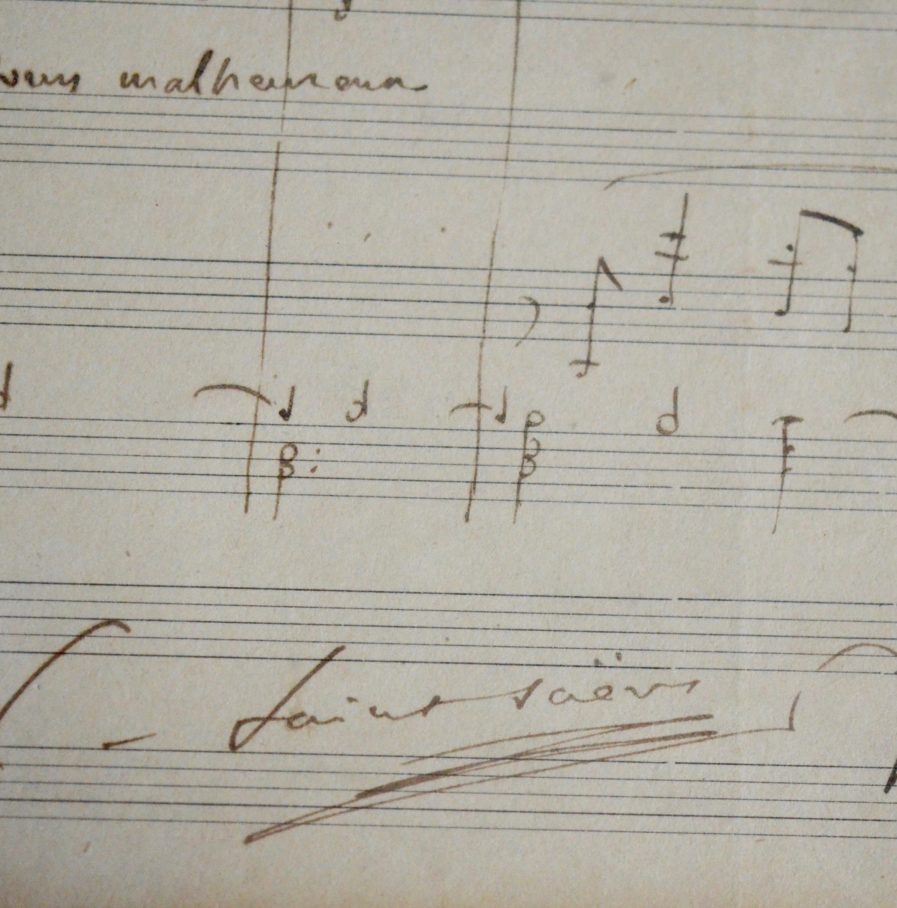 malheureux
C. Saint-Saëns